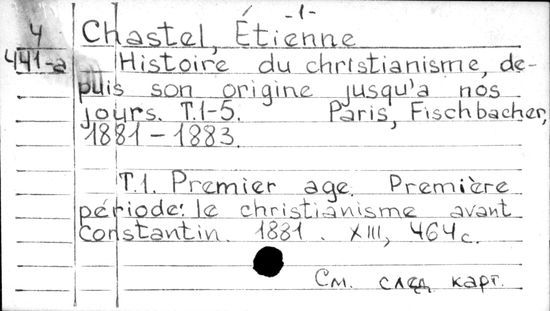 -1-
4 Chastel, Étienne
441-a Histoire du christianisme, de-
puis son origine jusqu'a nos
jours. T.1-5. Paris, Fischbacher,
1881-1883.
T.1. Premier age. Première
période: le christianisme avant
Constantin. 1881. XIII, 464 c.
См. след карт.